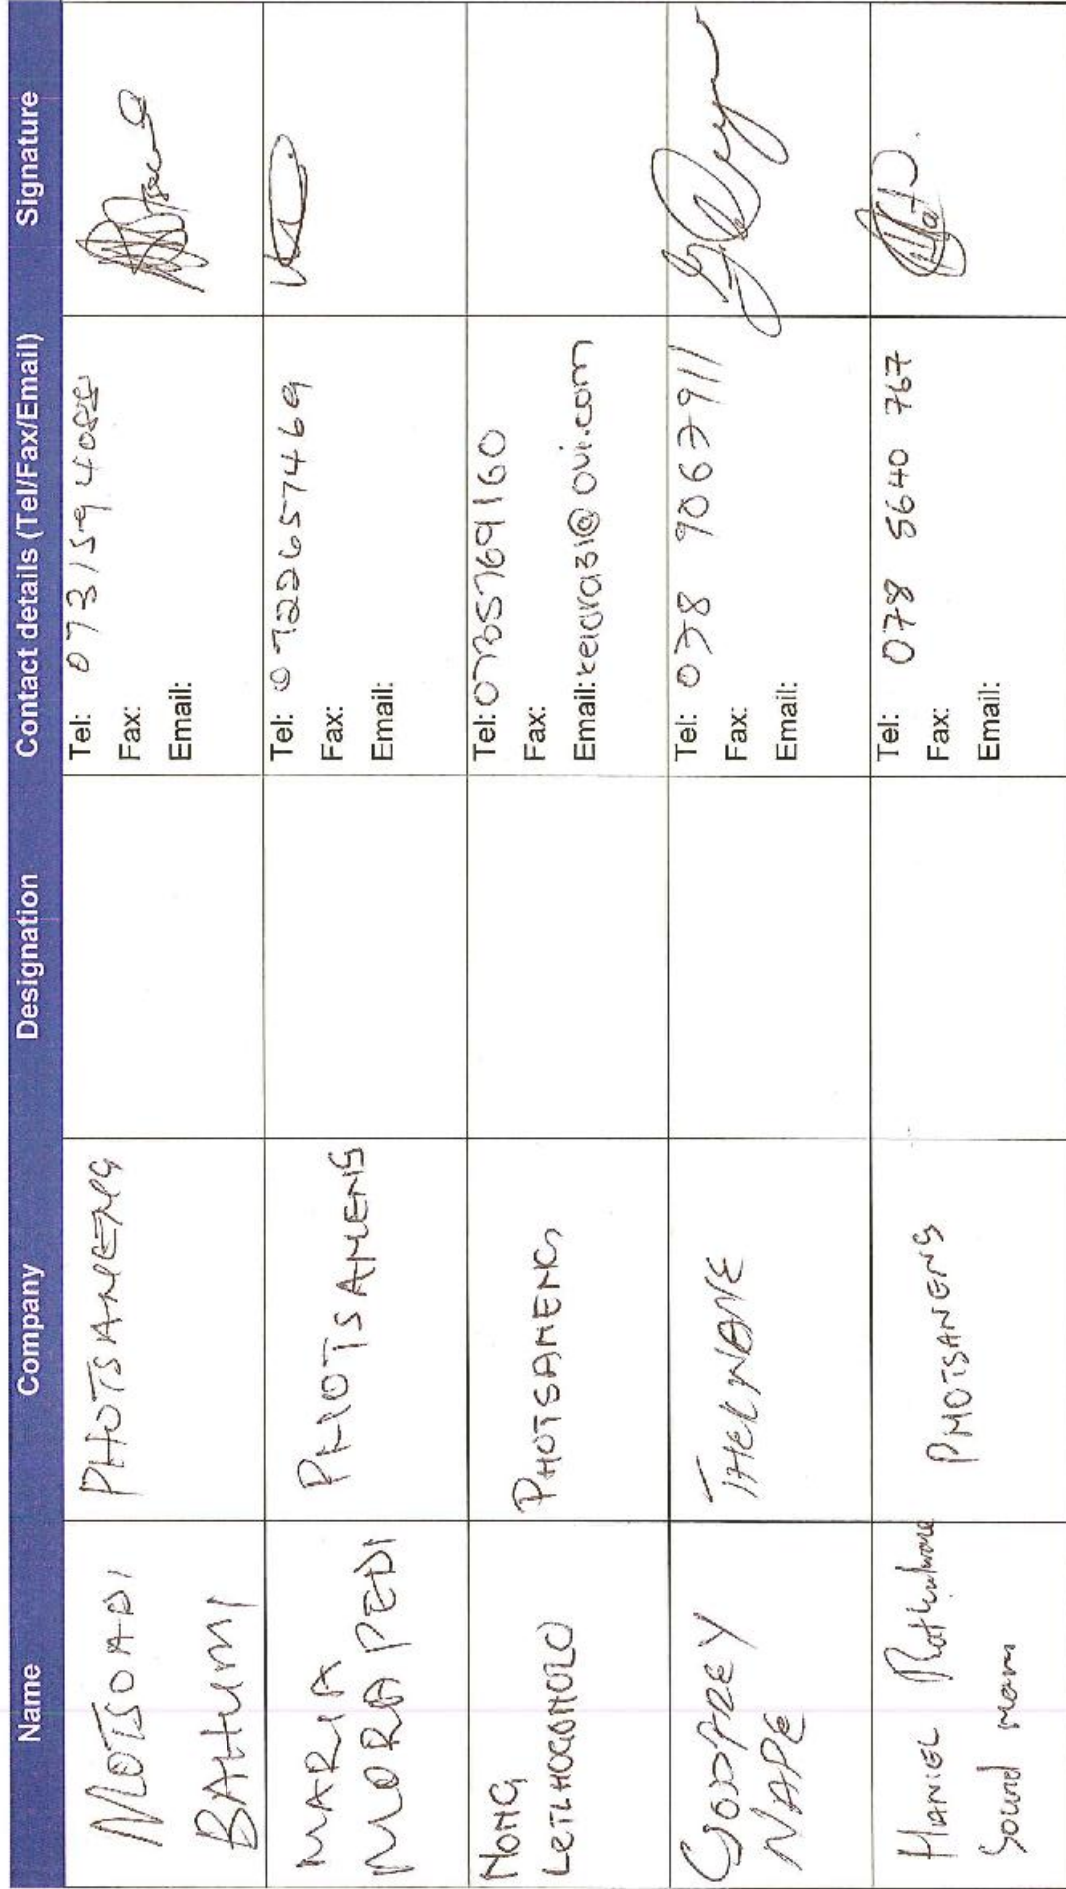 Name Company Designation Contact details (Tel/Fax/Email) Signature
MOTSOADI
BAHUMI
PHOTSANENG
Tel: 0731594088
Fax:
Email:
MARIA
MORAPEDI
PHOTSANENG
Tel: 0722657469
Fax:
Email:
NONG
LETLHOGONOLO
PHOTSANENG
Tel: 0735769160
Fax:
Email: keiara31@ovi.com
GODFREY
NAPE
THEKWANE
Tel: 078 9063911
Fax:
Email:
HANIEL
Sound man
PHOTSANENG
Tel: 078 5640 767
Fax:
Email: